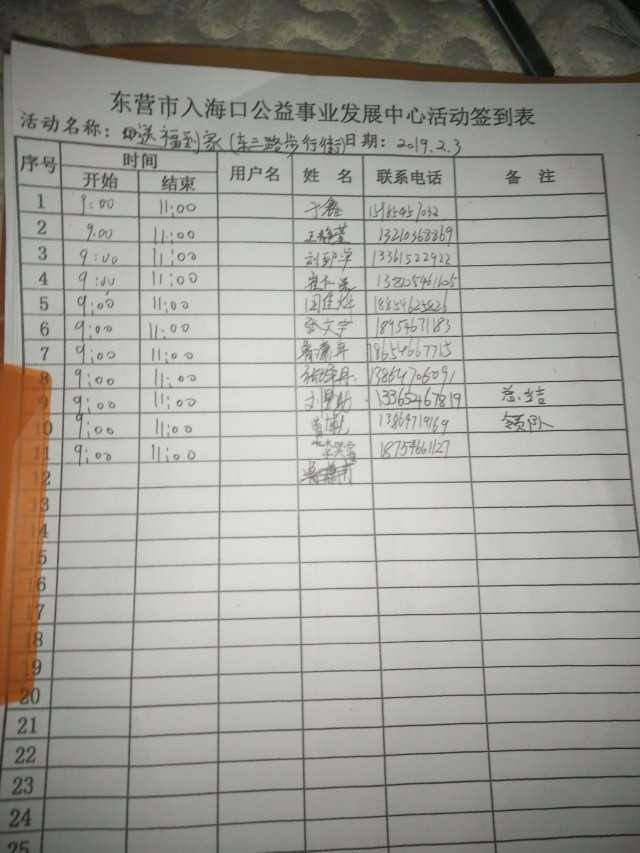 东营市入海口公益事业发展中心活动签到表
活动名称：送福到家(东三路步行街)日期：2019.2.3
序号 时间 用户名 姓 名 联系电话 备 注
开始 结束
1 9:00 11:00 于鑫 15985457032
2 9:00 11:00 13210368869
3 9:00 11:00 13361522922
4 9:00 11:00
5 9:00 11:00 18854625826
6 9:00 11:00 张文宇 18954671183
7 9:00 11:00 18654667715
8 9:00 11:00 13864706091
9 9:00 11:00 13365467819 总结
10 9:00 11:00 13864719169 领队
11 9:00 11:00 18754661127
12
13
14
15
16
17
18
19
20
21
22
23
24
25